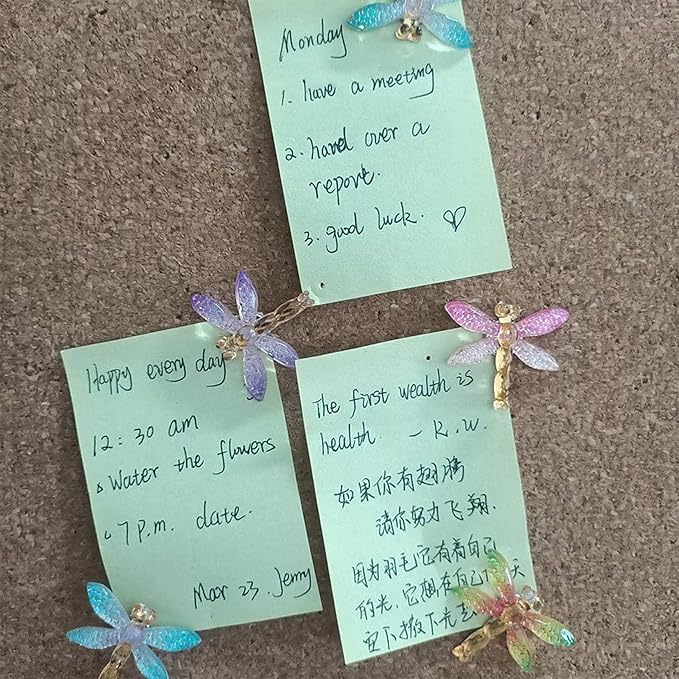 Monday
1. have a meeting
2. hand over a
report.
3. good luck. ♡
Happy every day
12:30 am
Water the flowers
7 p.m. date.
Mar 23. Jenny
The first wealth is
health. — R.W.
如果你有翅膀
请你努力飞翔.
因为羽毛它有高自己
的光，它想在自己
留下撒下光